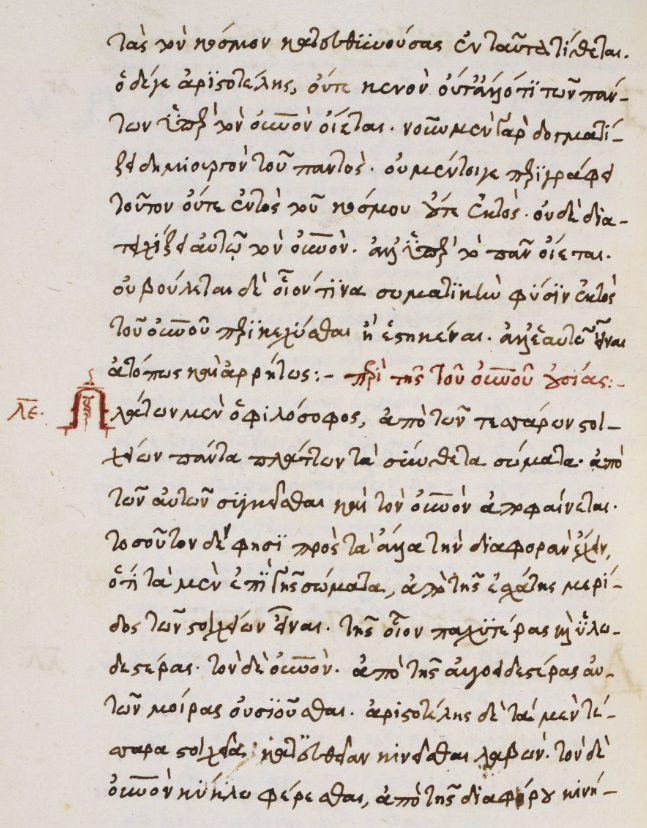 τὰς τὸν κόσμον κατευθϊνούσας ἐνταῦτα τίθεται.
ὁ δέγε ἀριστοτέλης, οὔτε κενὸν οὔτ' ἄλλό τϊ τῶν πάν-
των ὑπὲρ τὸν οὐνὸν οἴεται. νοῦν μὲν γὰρ δογματί-
ζει δημιουργὸν τοῦ παντός. οὐ μέντοιγε περϊγράφει
τοῦτον οὔτε ἐντὸς τοῦ κόσμου οὔτε ἐκτὸς. οὐδὲ δια-
τειχίζει αὐτῷ τὸν οὐνὸν. ἀλλ' ὑπὲρ τὸ πᾶν οἴεται.
οὐ βούλεται δὲ οἷον τϊνα σωματϊκὴν φύσϊν ἐκτὸς
τοῦ οὐνοῦ περϊκεχύσθαι ἢ ἑστηκέναι. ἀλλ' ἑαυτοῦ εἶναι
ἀτόπως καὶ ἀρρήτως:- περὶ τῆς τοῦ οὐνοῦ οὐσίας:-
λε. Πλάτων μὲν ὁ φιλόσοφος, ἀπὸ τῶν τεσσάρων στοι-
χείων πάντα πλάττων τὰ σύνθετα σώματα. ἀπὸ
τῶν αὐτῶν σϋγκεῖσθαι καὶ τὸν οὐνὸν ἀποφαίνεται.
τοσοῦτον δέ φησϊ πρὸς τὰ ἄλλα τὴν διαφορὰν ἔχειν,
ὅτι τὰ μὲν ἐπῒ γῆς σώματα, ἀπὸ τῆς ἐσχάτης μερί-
δος τῶν στοιχείων εἶναι. τῆς οἷον παχϋτέρας καὶ ὑλω-
δεστέρας. τὸν δὲ οὐνὸν. ἀπὸ τῆς αὐγοειδεστέρας αὐ-
τῶν μοίρας οὐσϊοῦσθαι. ἀριστοτέλης δὲ τὰ μὲν τέ-
σσαρα στοιχεῖα, κατευθεῖαν κινεῖσθαι λαβών. τὸν δὲ
οὐνὸν κύκλω φέρεσθαι, ἀπὸ τῆς διαφόρου κινή-